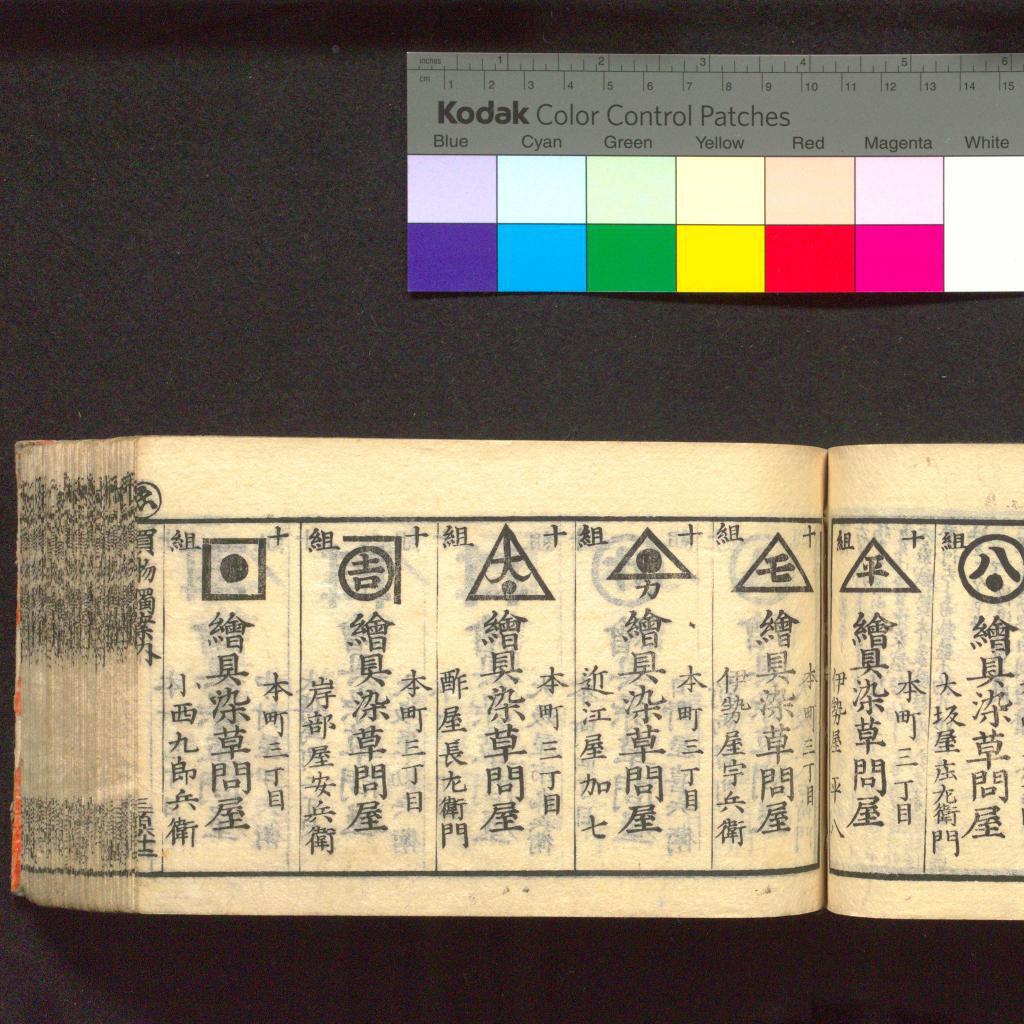 inches 1 2 3 4 5 6
cm 1 2 3 4 5 6 7 8 9 10 11 12 13 14 15
Kodak Color Control Patches
Blue Cyan Green Yellow Red Magenta White
組
八
繪具染草問屋
大坂屋庄左衛門
十
組
平
繪具染草問屋
本町三丁目
伊勢屋平八
十
組
繪具染草問屋
本町三丁目
伊勢屋宇兵衛
十
組
カ
繪具染草問屋
本町三丁目
近江屋加七
十
組
大
繪具染草問屋
本町三丁目
酢屋長左衛門
十
組
吉
繪具染草問屋
本町三丁目
岸部屋安兵衛
十
組
繪具染草問屋
本町三丁目
小西九郎兵衛
ゑ
買物獨案内